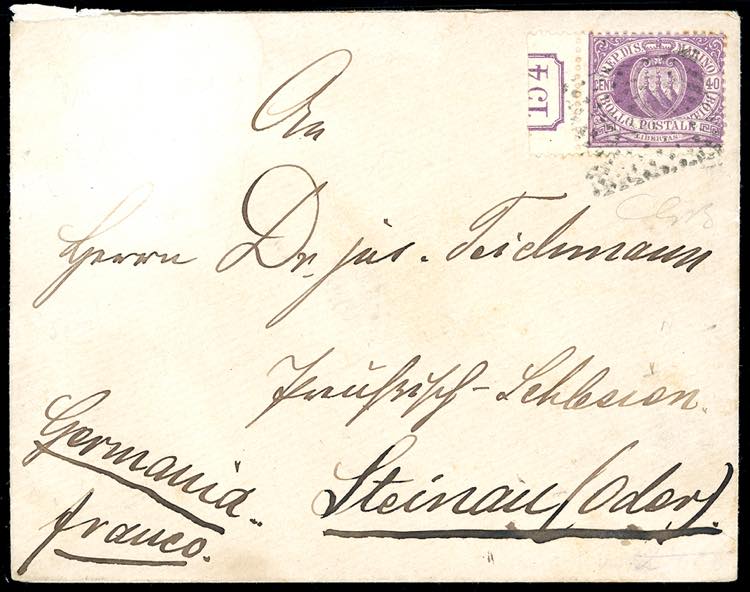 154
REP. DI S. MARINO
CEN 40
BOLLO POSTALE
LIBERTAS
An
Herrn Dr. jur. Teichmann
Preußisch-Schlesien.
Steinau (Oder).
Germania.
franco.